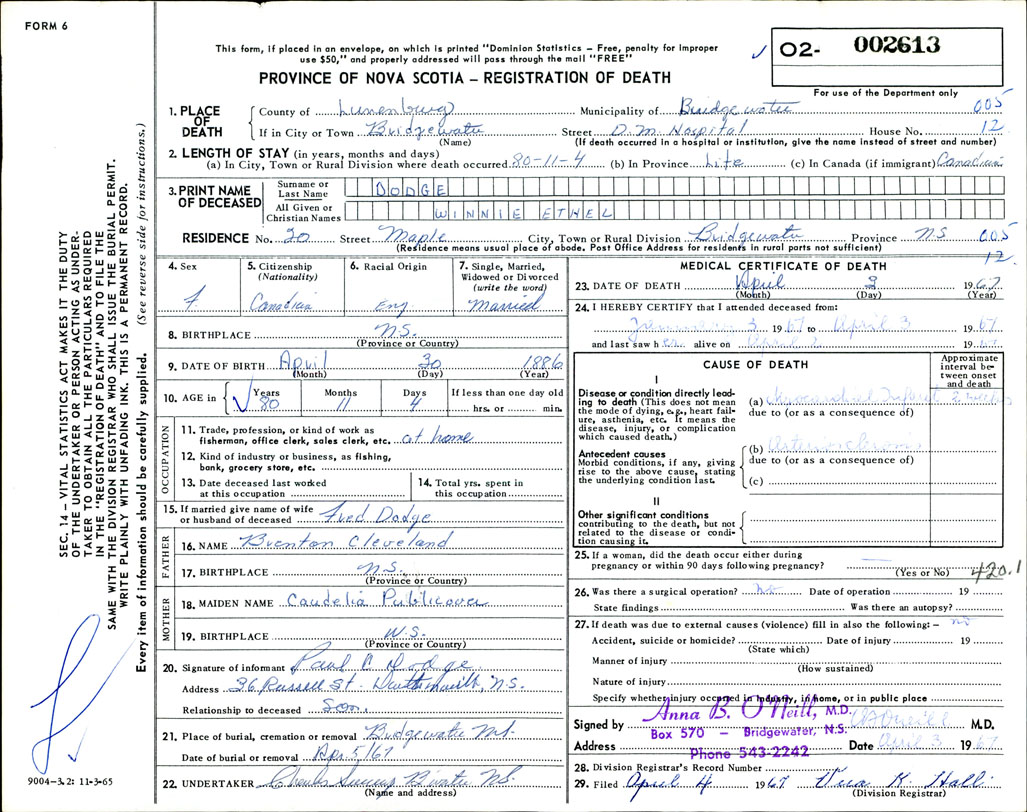 FORM 6
This form, if placed in an envelope, on which is printed "Dominion Statistics – Free, penalty for improper
use $50," and properly addressed will pass through the mail "FREE"
PROVINCE OF NOVA SCOTIA – REGISTRATION OF DEATH
O2- 002613
For use of the Department only
1. PLACE OF DEATH
County of Lunenburg Municipality of Bridgewater 005
If in City or Town Bridgewater Street D.M. Hospital House No. 12
(Name) (If death occurred in a hospital or institution, give the name instead of street and number)
2. LENGTH OF STAY (in years, months and days)
(a) In City, Town or Rural Division where death occurred 80-11-4 (b) In Province Life (c) In Canada (if immigrant) Canadian
3. PRINT NAME OF DECEASED
Surname or Last Name DODGE
All Given or Christian Names WINNIE ETHEL
RESIDENCE No. 20 Street Maple City, Town or Rural Division Bridgewater Province NS 005
(Residence means usual place of abode. Post Office Address for residents in rural parts not sufficient) 12
4. Sex F
5. Citizenship (Nationality) Canadian
6. Racial Origin Eng
7. Single, Married, Widowed or Divorced (write the word) Married
8. BIRTHPLACE N.S.
(Province or Country)
9. DATE OF BIRTH April 30 1886
(Month) (Day) (Year)
10. AGE in Years 80 Months 11 Days 4 If less than one day old hrs. or min.
OCCUPATION
11. Trade, profession, or kind of work as
fisherman, office clerk, sales clerk, etc. at home
12. Kind of industry or business, as fishing,
bank, grocery store, etc.
13. Date deceased last worked
at this occupation
14. Total yrs. spent in
this occupation
15. If married give name of wife
or husband of deceased Fred Dodge
FATHER
16. NAME Brenton Cleveland
17. BIRTHPLACE N.S.
(Province or Country)
MOTHER
18. MAIDEN NAME Caudelia Publicover
19. BIRTHPLACE N.S.
(Province or Country)
20. Signature of informant Paul C Dodge
Address 36 Russell St. Dartmouth, N.S.
Relationship to deceased Son
21. Place of burial, cremation or removal Bridgewater N.S.
Date of burial or removal Apr. 5/67
22. UNDERTAKER N.S.
(Name and address)
9004-3.2: 11-3-65
MEDICAL CERTIFICATE OF DEATH
23. DATE OF DEATH April 3 1967
(Month) (Day) (Year)
24. I HEREBY CERTIFY that I attended deceased from:
January 3 1967 to April 3 1967
and last saw her alive on April 2 1967
CAUSE OF DEATH
Approximate interval between onset and death
I
Disease or condition directly leading to death (This does not mean the mode of dying, e.g., heart failure, asthenia, etc. It means the disease, injury, or complication which caused death.)
(a) Myocardial Infarct 2 weeks
due to (or as a consequence of)
Antecedent causes
Morbid conditions, if any, giving rise to the above cause, stating the underlying condition last.
(b) Arteriosclerosis
due to (or as a consequence of)
(c)
II
Other significant conditions
contributing to the death, but not related to the disease or condition causing it.
25. If a woman, did the death occur either during
pregnancy or within 90 days following pregnancy? —
(Yes or No) 420.1
26. Was there a surgical operation? no Date of operation 19
State findings Was there an autopsy?
27. If death was due to external causes (violence) fill in also the following:– no
Accident, suicide or homicide? Date of injury 19
(State which)
Manner of injury
(How sustained)
Nature of injury
Specify whether injury occurred in Industry, in home, or in public place
Anna B. O'Neill, M.D.
Box 570 – Bridgewater, N.S.
Phone 543-2242
Signed by M.D.
Address Date April 3 1967
28. Division Registrar's Record Number
29. Filed April 4 1967 Vera K. Hall
(Division Registrar)
SEC. 14 – VITAL STATISTICS ACT MAKES IT THE DUTY
OF THE UNDERTAKER OR PERSON ACTING AS UNDER-
TAKER TO OBTAIN ALL THE PARTICULARS REQUIRED
IN THE "REGISTRATION OF DEATH" AND TO FILE THE
SAME WITH THE DIVISION REGISTRAR WHO SHALL ISSUE THE BURIAL PERMIT.
WRITE PLAINLY WITH UNFADING INK. THIS IS A PERMANENT RECORD.
Every item of information should be carefully supplied. (See reverse side for instructions.)